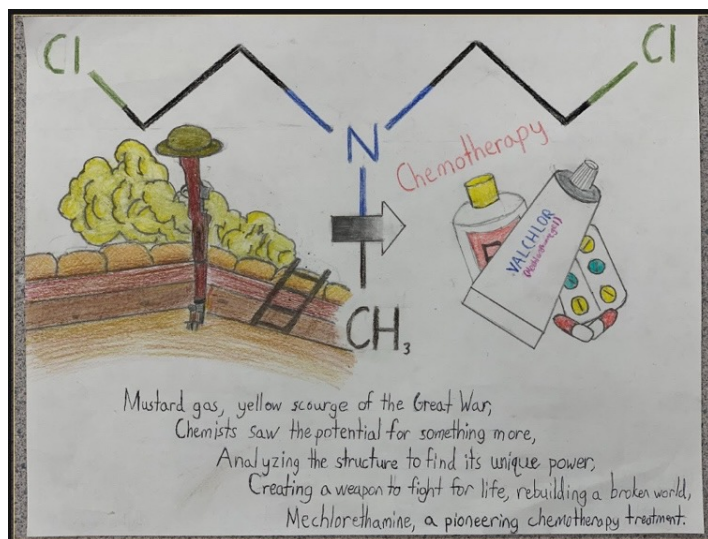 Cl
Cl
N
Chemotherapy
VALCHLOR
CH₃
Mustard gas, yellow scourge of the Great War;
Chemists saw the potential for something more,
Analyzing the structure to find its unique power;
Creating a weapon to fight for life, rebuilding a broken world,
Mechlorethamine, a pioneering chemotherapy treatment.